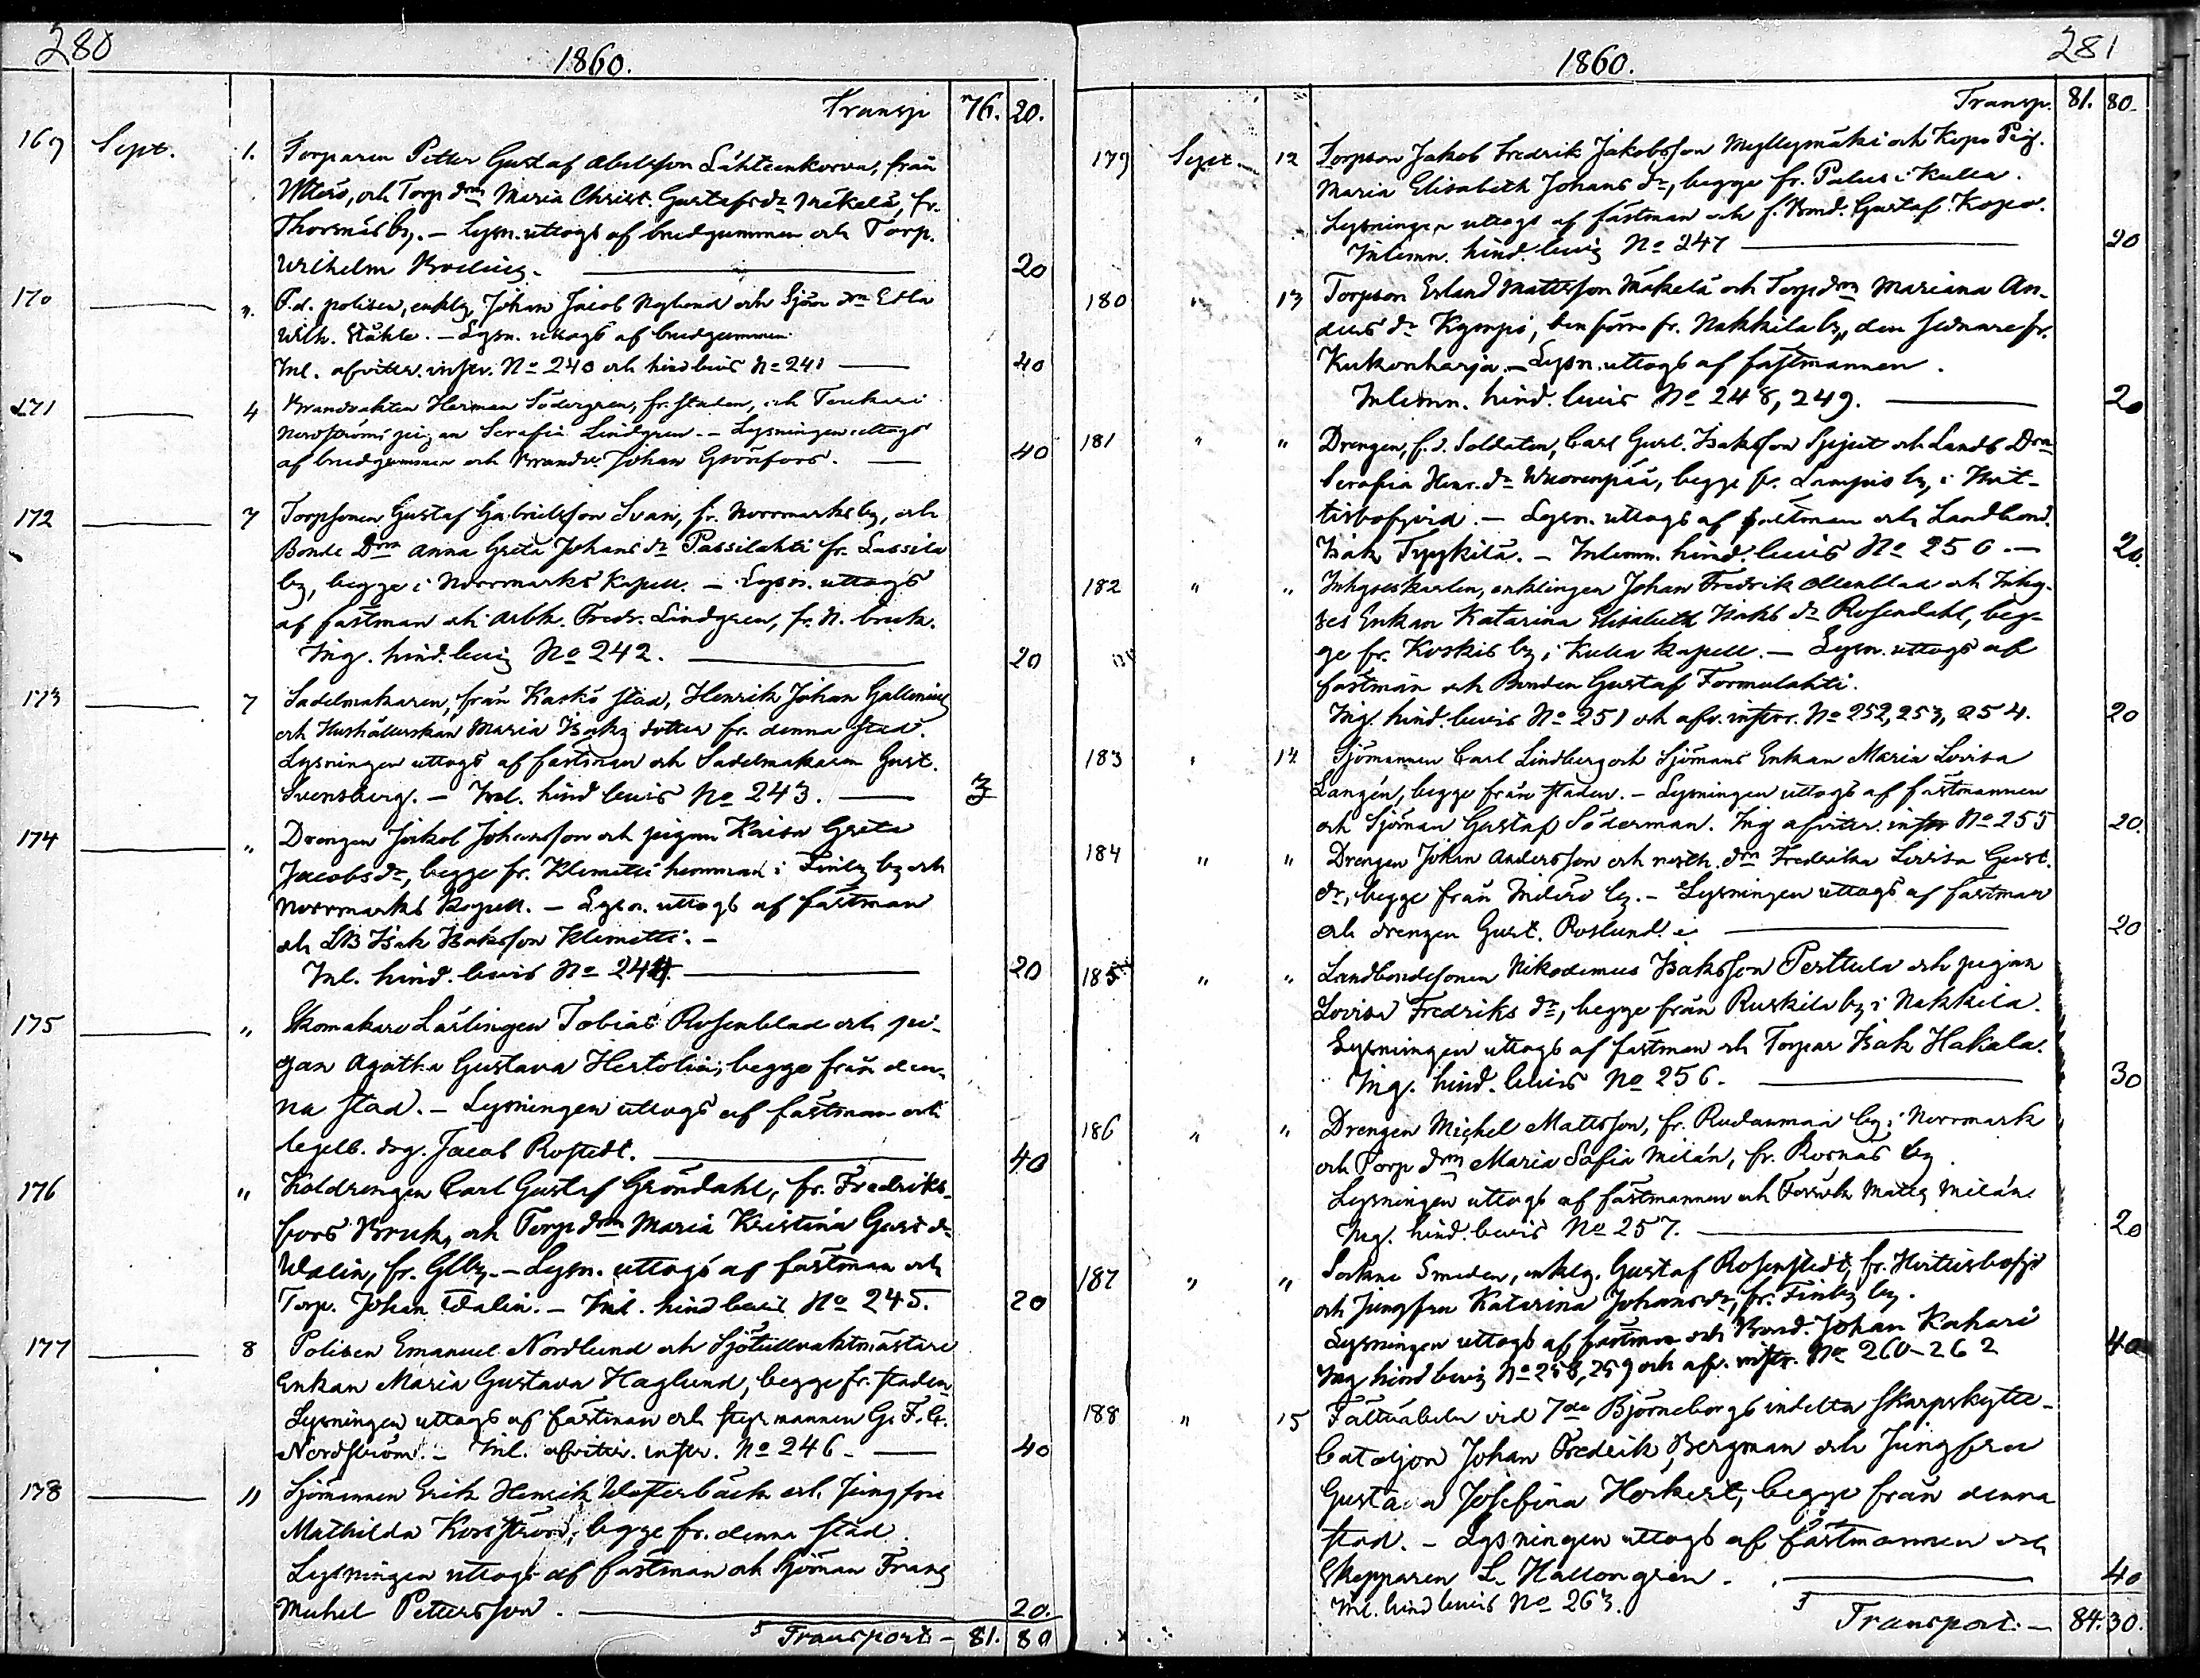 280
1860.
Transp 76. 20.
169 Sept. 1. Torparen Petter Gustaf Abelsson Lähteenkorva, från
Ytterö, och Torp drn Maria Christ. Gustafs dr Mäkelä, fr.
Thorsnäs by. — Lysn. uttogs af brudgummen och Torp.
Wilhelm Broling. — 20
170 ". F.d. polisen, enkl. Johan Jacob Noglund och Sjöm drn Edla
Wilh. Ståhle. — Lysn. uttogs af brudgummen.
Inl. afvittr. instr. No 240 och hind bevis No 241 — 40
171 — 4 Brandvakten Herman Södergren, fr. staden, och
Nordströms pigan Serafia Lindgren. — Lysningen uttogs
af brudgummen och Brandv. Johan Grönfors. — 40
172 — 7 Torpsonen Gustaf Gabrielsson Svan, fr. Norrmarks by, och
Bonde Drn Anna Greta Johans dr Passilahti fr. Lassila
by, begge i Norrmarks Kapell. — Lysn. uttogs
af fästman och Arbk. Fredr. Lindgren, fr. N. bruk.
Ing. hind. bevis No 242. — 20
173 — 7 Sadelmakaren, från Kaskö stad, Henrik Johan Gallenius
och Hushållerskan Maria Isaks dotter fr. denna stad.
Lysningen uttogs af fästman och Sadelmakaren Gust.
Svensberg. — Inl. hind bevis No 243. — 3
174 — " Drengen Jakob Johansson och pigan Kaisa Greta
Jacobs dr, begge fr. Klemetti hemman i Finby by och
Norrmarks Kapell. — Lysn. uttogs af fästman
och LB Isak Isaksson Klemetti. —
Inl. hind. bevis No 244. — 20
175 — " Skomakare Lärlingen Tobias Rosenblad och pi-
gan Agatha Gustava Hertolin, begge från den-
na stad. — Lysningen uttogs af fästman och
Jacob Rostedt. — 40
176 " Koldrengen Carl Gustaf Gröndahl, fr. Fredriks-
fors Bruk, och Torp drn Maria Kristina Gust dr
Walin, fr. Glby. — Lysn. uttogs af fästman och
Torp. Johan Walin. — Inl. hind bevis No 245. 20
177 — 8 Polisen Emanuel Nordlund och Sjötullvaktmästare
Enkan Maria Gustava Haglund, begge fr. staden
Lysningen uttogs af fästman och styrmannen G. F. G.
Nordström. — Inl. afvittr. instr. No 246. — 40
178 — 11 Sjömannen Erik Henrik Westerbäck och Jungfru
Mathilda Korsström, begge fr. denna stad.
Lysningen uttogs af fästman och Sjöman Frans
Mickel Petersson. — 20.
5 Transport — 81. 80
281
1860.
Transp. 81. 80.
179 Sept. 12 Torpson Jakob Fredrik Jakobsson Myllymäki och Kopo Pig.
Maria Elisabeth Johans dr, begge fr. Palus i Kulla.
Lysningen uttogs af fästman och f. Bond. Gustaf Kopo.
Inlemn. hind. bevis No 247 — 20
180 " 13 Torpson Erland Mattsson Mäkelä och Torp drn Mariana An-
ders dr Kympi, den förre fr. Nakkila by, den sednare fr.
Kukonharja. — Lysn. uttogs af fästmannen.
Inlemn. hind. bevis No 248, 249. — 20
181 " " Drengen, f.d. Soldaten, Carl Gust. Isaksson Spjut och Landb Drn
Serafia Henr. dr Wuorenpää, begge fr. Lampis by, i Hvit-
tisbofjerd. — Lysn. uttogs af fästman och Landbond.
Isak Tyykilä. — Inlemn. hind. bevis No 250. — 20.
182 " " Inhyseskarlen, enklingen Johan Fredrik Allenblad och Inhy-
ses Enkan Katarina Elisabeth Isaks dr Rosendahl, beg-
ge fr. Koskis by i Kulla kapell. — Lysn. uttogs af
fästman och Bonden Gustaf Formulahti.
Ing. hind. bevis No 251 och afv. instr. No 252, 253, 254. 20
183 " 14 Sjömannen Carl Lindberg och Sjömans Enkan Maria Lovisa
Langén, begge från staden. — Lysningen uttogs af fästmannen
och Sjöman Gustaf Söderman. Ing afvittr. instr No 255 20.
184 " " Drengen Johan Andersson och drn Fredrika Lovisa Gust.
dr, begge från Inderö by. — Lysningen uttogs af fästman
och drengen Gust. Roslund. — 20
185 " " Landbondesonen Nikodemus Isaksson Perttula och pigan
Lovisa Fredriks dr, begge från Ruskila by i Nakkila.
Lysningen uttogs af fästman och Torpar Isak Hakala.
Ing. hind. bevis No 256. — 30
186 " " Drengen Michel Mattsson, fr. Rudanmaa by i Norrmark
och Torp drn Maria Sofia Milán, fr. Rosnäs by
Lysningen uttogs af fästmannen och Matts Milán
Ing. hind. bevis No 257. — 20
187 " " Sockne Smeden, enklg. Gustaf Rosenstedt, fr. Hvittisbofjd
och Jungfru Katarina Johans dr, fr. Finby by.
Lysningen uttogs af fästman och Bond. Johan Kahari
Ing hind bevis No 258, 259 och afv. instr. No 260-262 40
188 " 15 Fältväbeln vid 7de Björneborgs indelta Skarpskytte-
bataljon Johan Fredrik Bergman och Jungfru
Gustava Josefina Hörkert, begge från denna
stad. — Lysningen uttogs af fästmannen och
Skepparen L. Hallongren. — 40
Inl. hind bevis No 263.
3 Transport. — 84. 30.